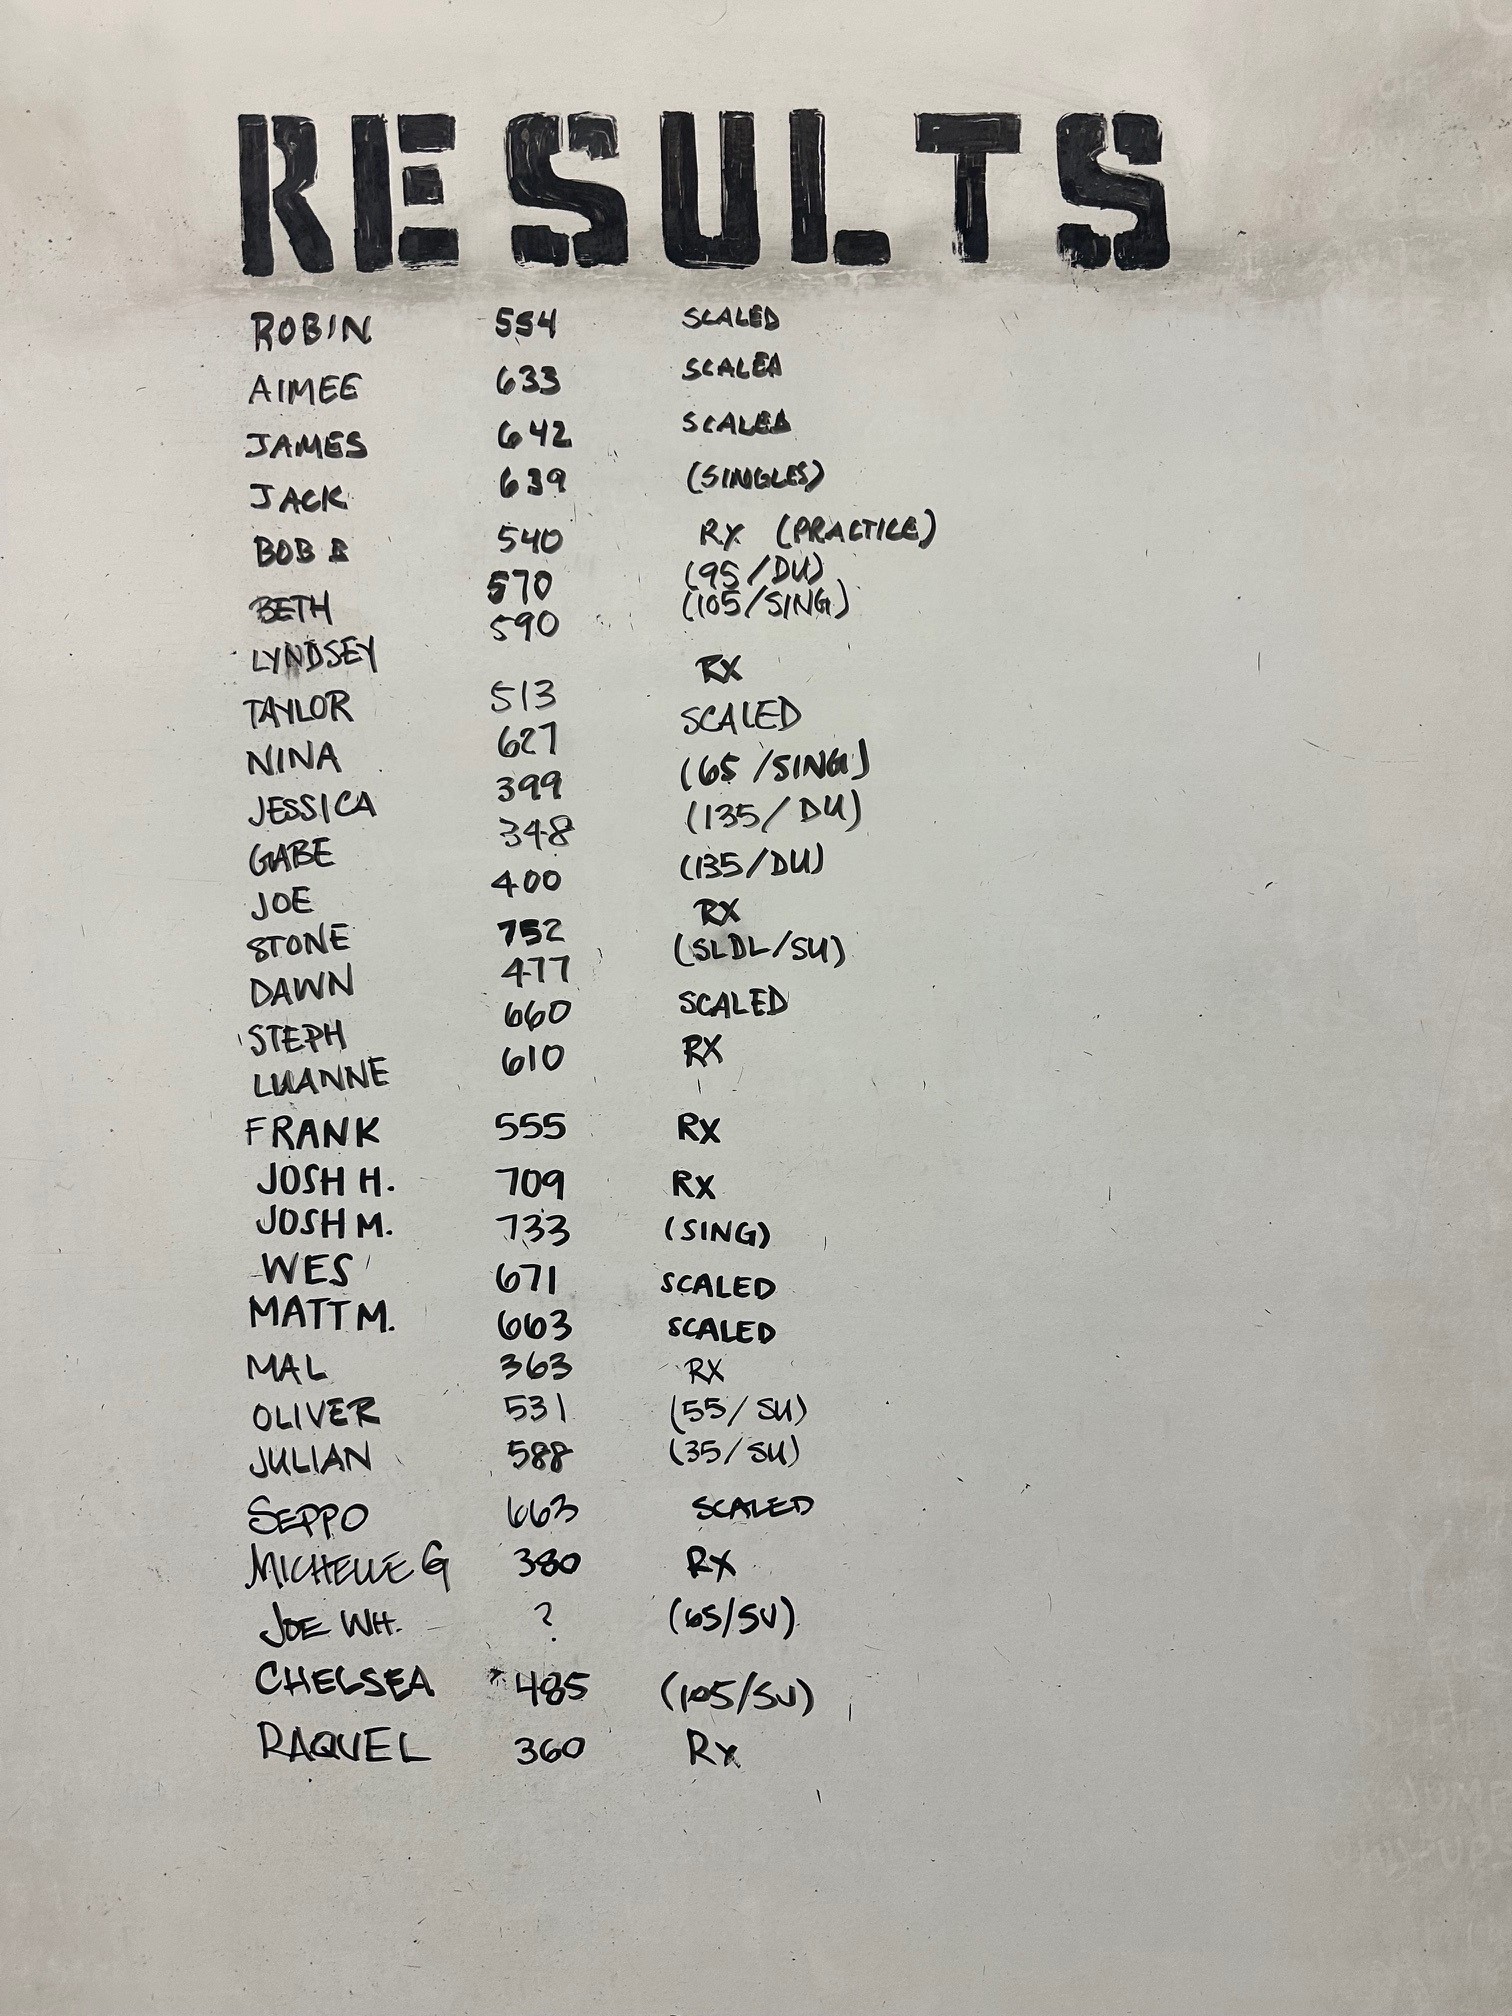 RESULTS
ROBIN 554 SCALED
AIMEE 633 SCALED
JAMES 642 SCALED
JACK 639 (SINGLES)
BOB B 540 RX (PRACTICE)
BETH 570 (95/DU)
LYNDSEY 590 (105/SING)
TAYLOR 513 RX
NINA 627 SCALED
JESSICA 399 (65/SING)
GABE 348 (135/DU)
JOE 400 (135/DU)
STONE 752 RX
DAWN 477 (SLDL/SU)
STEPH 660 SCALED
LUANNE 610 RX
FRANK 555 RX
JOSH H. 709 RX
JOSH M. 733 (SING)
WES 671 SCALED
MATT M. 663 SCALED
MAL 363 RX
OLIVER 531 (55/SU)
JULIAN 588 (35/SU)
SEPPO 663 SCALED
MICHELLE G 380 RX
JOE WH. ? (65/SU)
CHELSEA 485 (105/SU)
RAQUEL 360 Rx